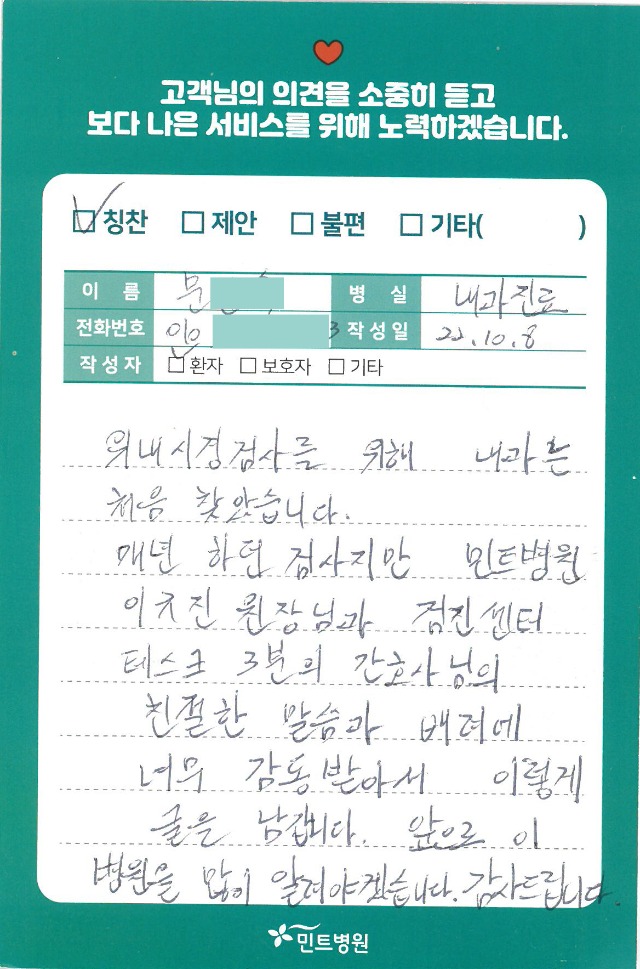 고객님의 의견을 소중히 듣고
보다 나은 서비스를 위해 노력하겠습니다.
칭찬 제안 불편 기타( )
이 름 문 병 실 내과진료
전화번호 3 작성일 22.10.8
작성자 환자 보호자 기타
위내시경검사를 위해 내과는
처음 찾았습니다.
매년 하던 검사지만 민트병원
원장님과 검진센터
테스크 3분의 간호사님의
친절한 말씀과 배려에
너무 감동받아서 이렇게
글을 남깁니다. 앞으로 이
병원을 많이 알려야겠습니다. 감사드립니다.
민트병원